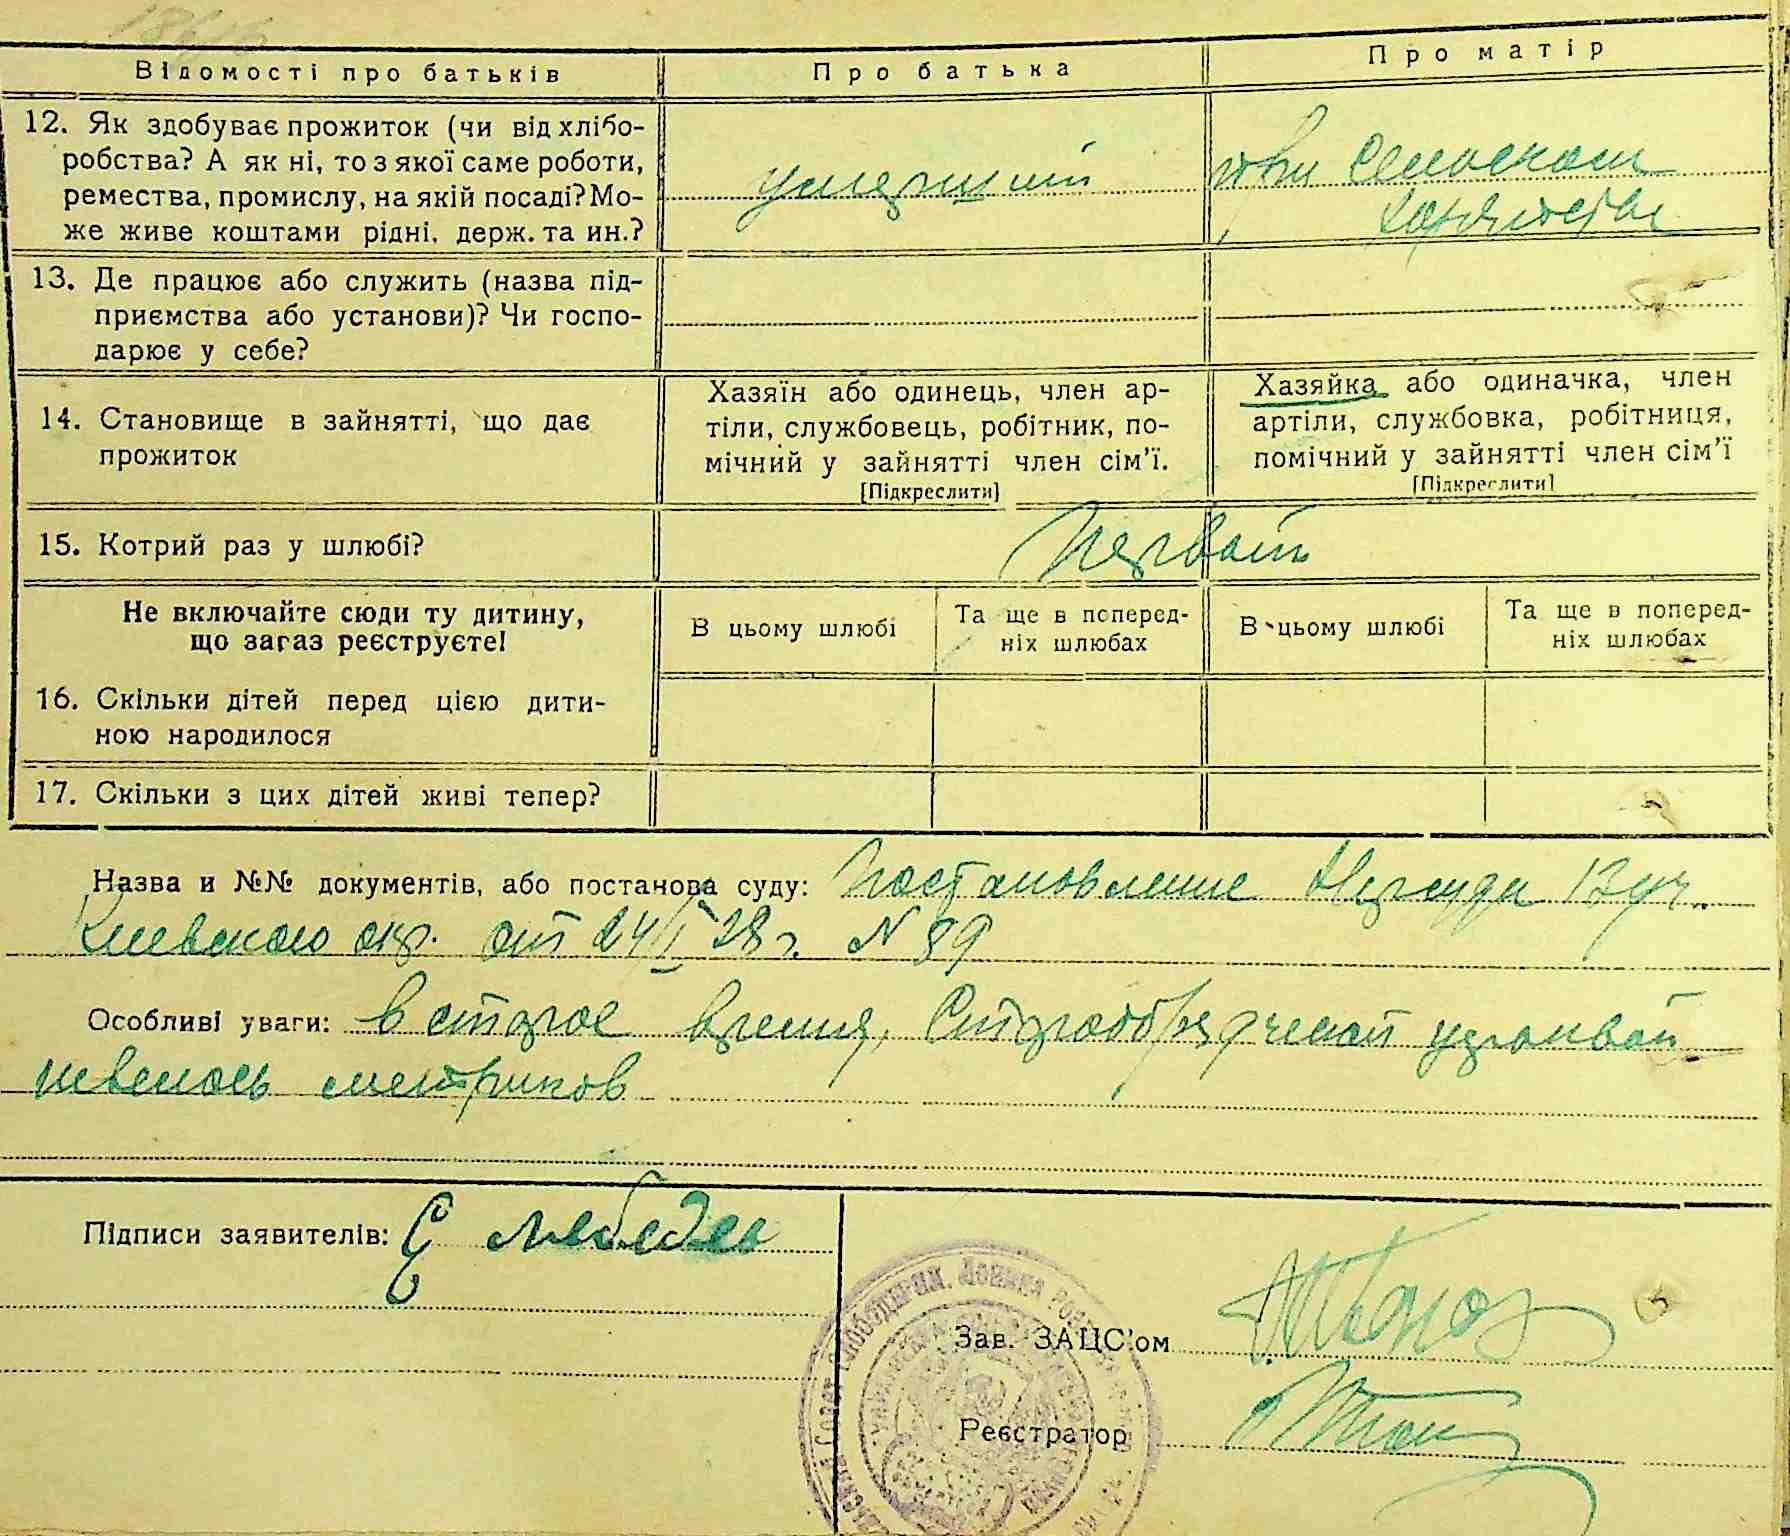 Відомості про батьків
Про батька
Про матір
12. Як здобуває прожиток (чи від хлібо-
робства? А як ні, то з якої саме роботи,
ремества, промислу, на якій посаді? Мо-
же живе коштами рідні, держ. та ин.?
умерший
при сельском
хозяйстве
13. Де працює або служить (назва під-
приємства або установи)? Чи госпо-
дарює у себе?
14. Становище в зайнятті, що дає
прожиток
Хазяїн або одинець, член ар-
тіли, службовець, робітник, по-
мічний у зайнятті член сім’ї.
[Підкреслити]
Хазяйка або одиначка, член
артіли, службовка, робітниця,
помічний у зайнятті член сім’ї
[Підкреслити]
15. Котрий раз у шлюбі?
Первый
Не включайте сюди ту дитину,
що загаз реєструєте!
В цьому шлюбі
Та ще в поперед-
ніх шлюбах
В цьому шлюбі
Та ще в поперед-
ніх шлюбах
16. Скільки дітей перед цією дити-
ною народилося
17. Скільки з цих дітей живі тепер?
Назва и №№ документів, або постанова суду: Постановление Нарсуда 13 уч.
Киевского окр. от 24/I 28 г. N 89
Особливі уваги: в старое время, Старообрядческой церковью
невелось метриков
Підписи заявителів: Е Лебедев
Зав. ЗАЦС’ом
Реєстратор